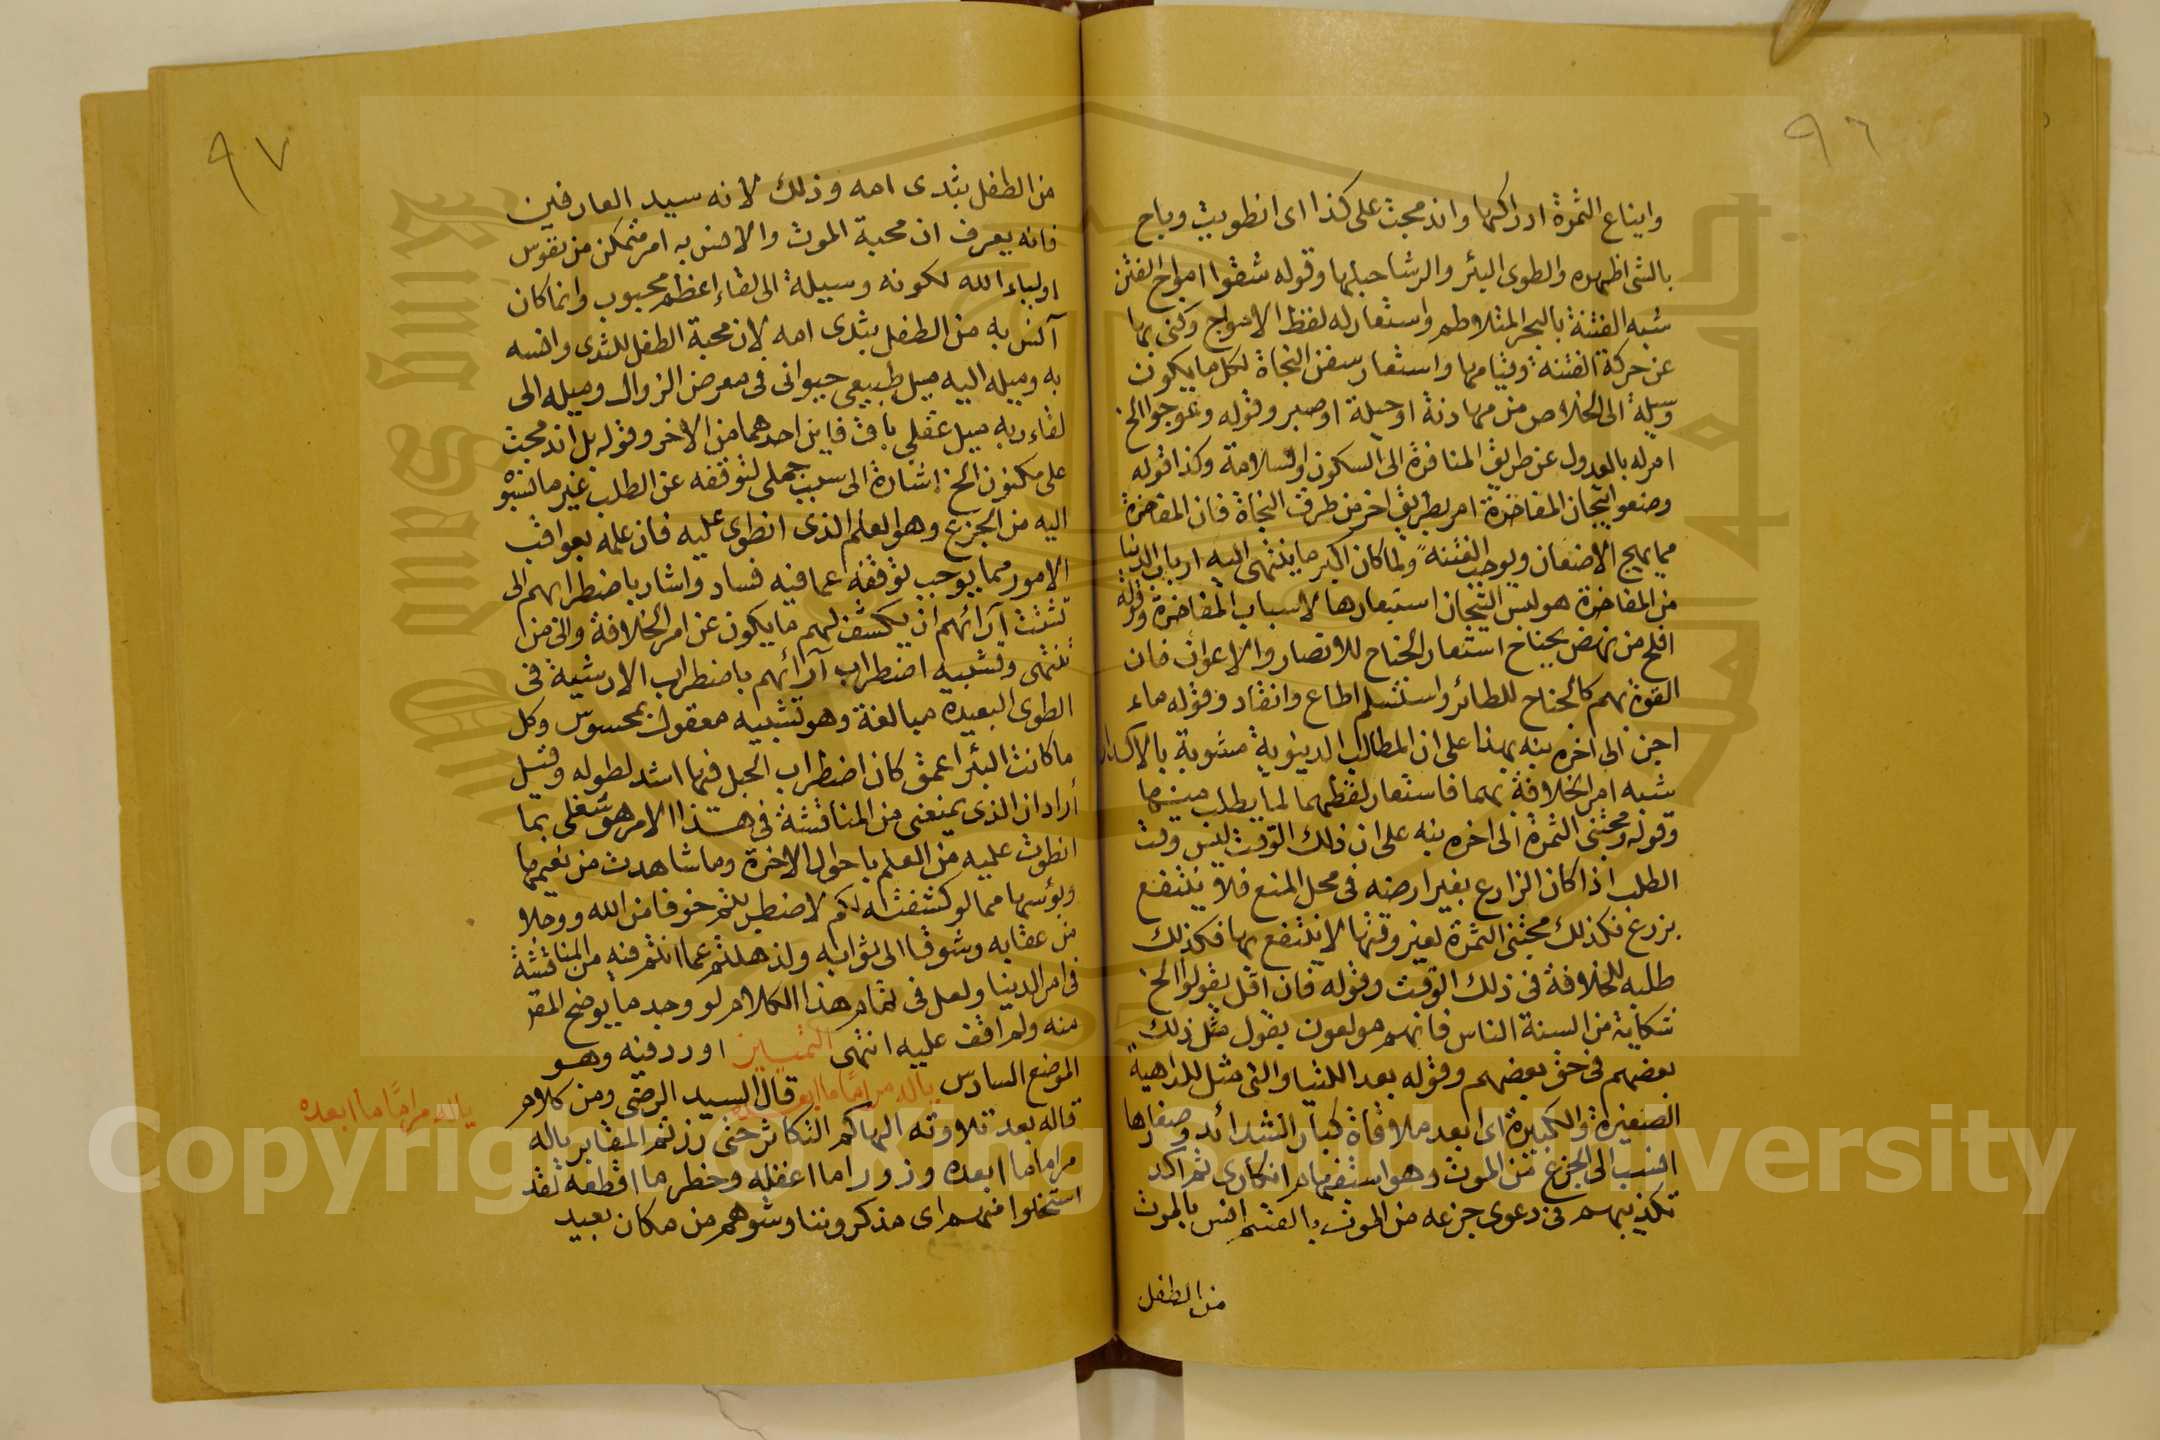 ٩٦
وايناع الثمرة ادراكها واندمجت على كذا اى انطويت وباح
بالشى اظهره والطوى البئر والرشا حبلها وقوله شقوا امواج الفتن
شبه الفتنة بالبحر المتلاطم واستعار له لفظ الامواج وكنى بها
عن حركة الفتنة وقيامها واستعار سفن النجاة لكل ما يكون
وسيلة الى الخلاص من مهادنة او حيلة او صبر وقوله وعوجوا الخ
امر له بالعدول عن طريق المنافرة الى السكون او السلامة وكذا قوله
وضعوا تيجان المفاخرة امر بطريق اخر من طرق النجاة فان المفاخرة
مما يهيج الاضغان ويوجب الفتنة ولما كان اكبر ما ينتهى اليه ارباب الدنيا
من المفاخرة هو لبس التيجان استعارها لاسباب المفاخرة وقوله
افلح من نهض بجناح استعار الجناح للانصار والاعوان فان
القوة بهم كالجناح للطائر واستسلم اطاع وانقاد وقوله ماء
اجن الى اخره نبه بهذا على ان المطالب الدنيوية مشوبة بالاكدار
شبه امر الخلافة بهما فاستعار لفظهما لما يطلب منها
وقوله ومجتنى الثمرة الى اخره نبه على ان ذلك الوقت ليس وقت
الطلب اذا كان الزارع بغير ارضه فى محل المنع فلا ينتفع
بزرع فكذلك مجتنى الثمرة لغير وقتها لا ينتفع بها فكذلك
طلبه للخلافة فى ذلك الوقت وقوله فان اقل يقولوا الخ
شكاية من السنة الناس فانهم مولعون بقول مثل ذلك
بعضهم فى حق بعضهم وقوله بعد اللتيا والتى مثل للداهية
الصغيرة والكبيرة اى ابعد ملاقاة كبار الشدائد وصغارها
انسب الى الجزع من الموت وهو استفهام انكارى ثم اكد
تكذيبهم فى دعوى جزعه من الموت بالقسم انس بالموت
من الطفل
٩٧
من الطفل بثدى امه وذلك لانه سيد العارفين
فانه يعرف ان محبة الموت والانس به امر متمكن من نفوس
اولياء الله لكونه وسيلة الى لقاء اعظم محبوب وانما كان
آنس به من الطفل بثدى امه لان محبة الطفل للثدى وانسه
به وميله اليه ميل طبيعى حيوانى فى معرض الزوال وميله الى
لقاء ربه ميل عقلى باق فاين احدهما من الاخر وقوله بل اندمجت
على مكنون الخ اشارة الى سبب جملى لتوقفه عن الطلب غير ما نسبوه
اليه من الجزع وهو العلم الذى انطوى عليه فان علمه بعواقب
الامور مما يوجب توقفه عما فيه فساد واشار باضطرابهم الى
تشتت آرائهم ان يكشف لهم ما يكون عن امر الخلافة والى من
تنتهى وتشبيه اضطراب آرائهم باضطراب الارشية فى
الطوى البعيدة مبالغة وهو تشبيه معقول بمحسوس وكل
ما كانت البئر اعمق كان اضطراب الحبل فيها اشد لطوله وقيل
أراد ان الذى يمنعنى من المناقشة فى هذا الامر هو شغلى بما
انطوت عليه من العلم باحوال الاخرة وما شاهدت من نعيمها
وبؤسها مما لو كشفته لكم لاضطربتم خوفا من الله ووجلا
من عقابه وشوقا الى ثوابه ولذهلتم عما انتم فيه من المناقشة
فى امر الدنيا ولعل فى تمام هذا الكلام لو وجد ما يوضح المقر
منه ولم اقف عليه انتهى التمييز اورد فيه وهو
الموضع السادس ياله مراما ما ابعده قال السيد الرضى ومن كلام
ياله مرامًا ما ابعده
قاله بعد تلاوته الهاكم التكاثر حتى زرتم المقابر ياله
مراما ما ابعده وزورا ما اغفله وخطر ما افظعه لقد
استخلوا منهم اى مذكر وتناوشوهم من مكان بعيد
Copyright © King Saud University
King Saud University
جامعة الملك